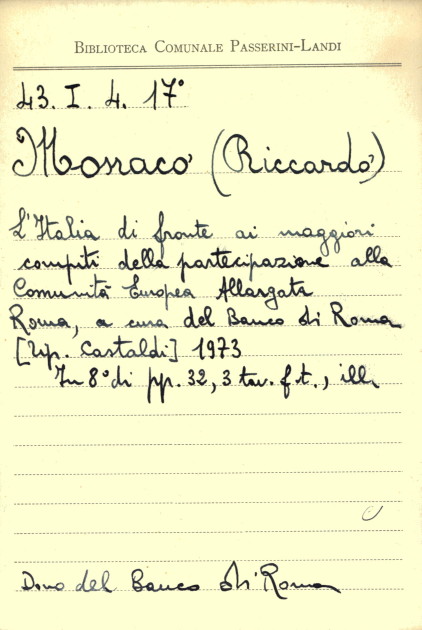 BIBLIOTECA COMUNALE PASSERINI-LANDI
43. I. 4. 17°
Monaco (Riccardo)
L'Italia di fronte ai maggiori
compiti della partecipazione alla
Comunità Europea Allargata
Roma, a cura del Banco di Roma
[Tip. Castaldi] 1973
In 8° di pp. 32, 3 tav. f.t., ill.
Dono del Banco di Roma